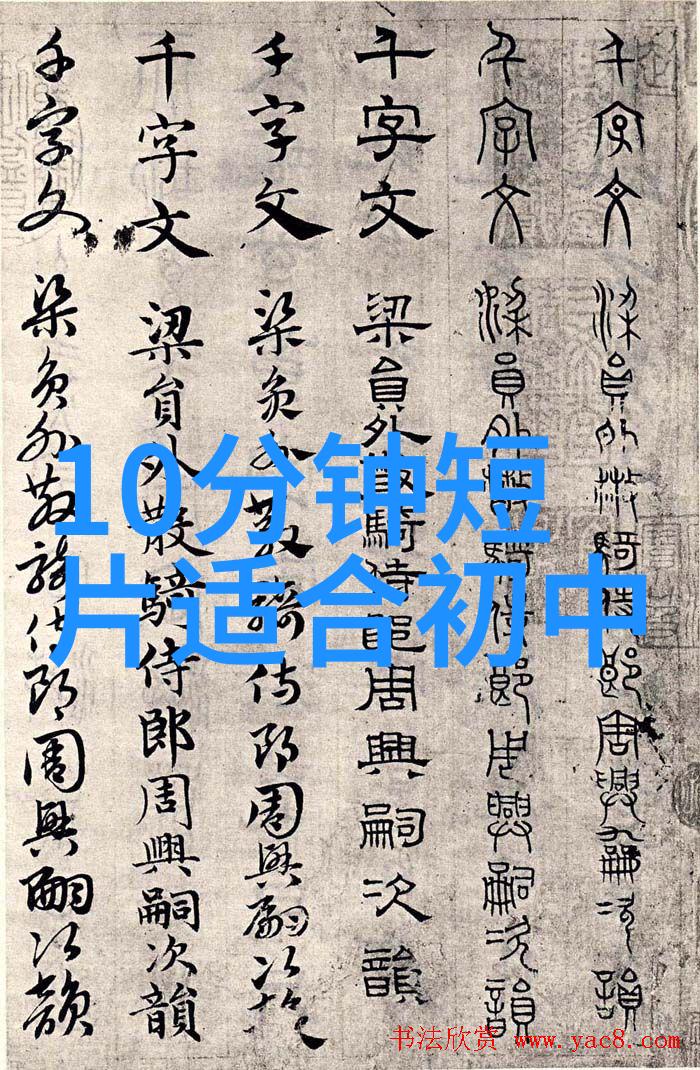 10分钟短
片适合初中
千字文 梁員外散騎侍郎周興嗣次韻
千字文 梁員外散騎侍郎周興嗣次韻
千字文 梁員外散騎侍郎周興嗣次韻
千字文 梁員外散騎侍郎周興嗣次韻
千字文 梁員外散騎侍郎周興嗣次韻
千字文 梁員外散騎侍郎周興嗣次韻
书法欣赏 www.yac8.com